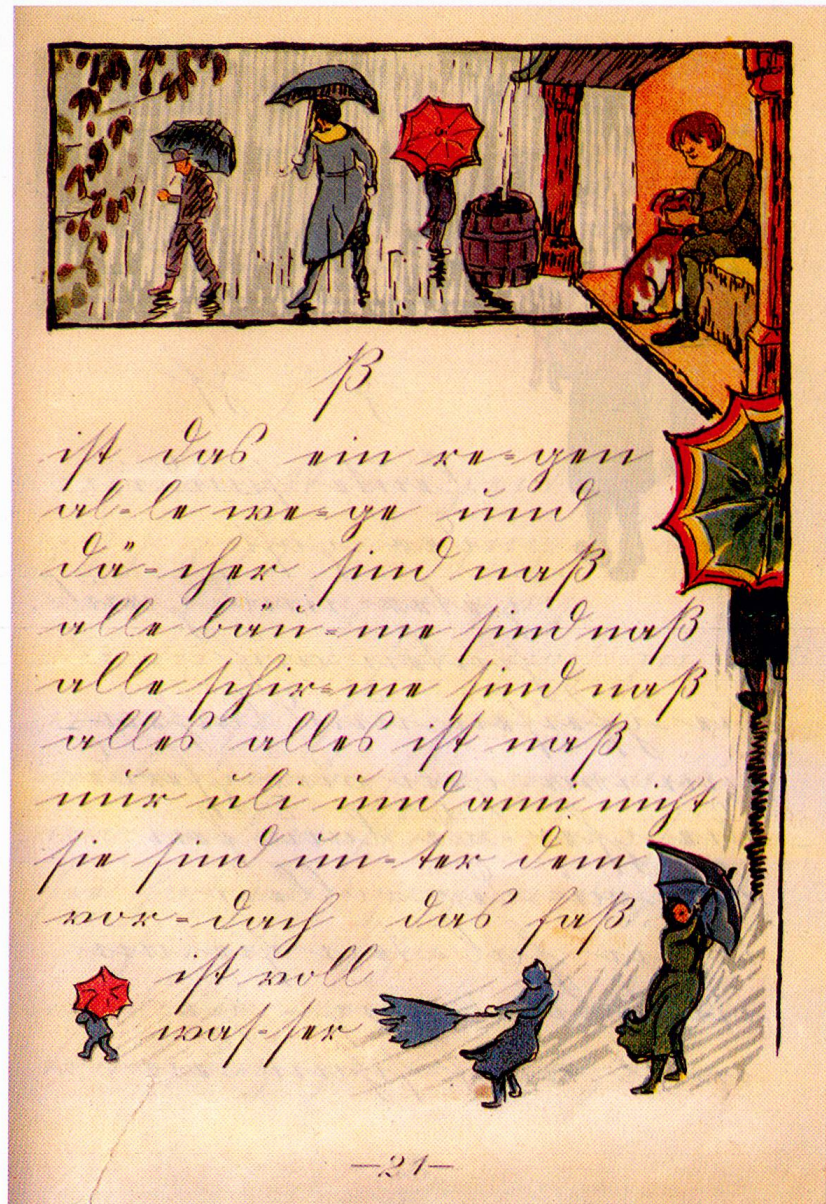 ß
ist das ein re-gen
al-le we-ge und
dä-cher sind naß
alle bäu-me sind naß
alle schir-me sind naß
alles alles ist naß
nur uli und anni nicht
sie sind un-ter dem
vor-dach das faß
ist voll
was-ser
-21-